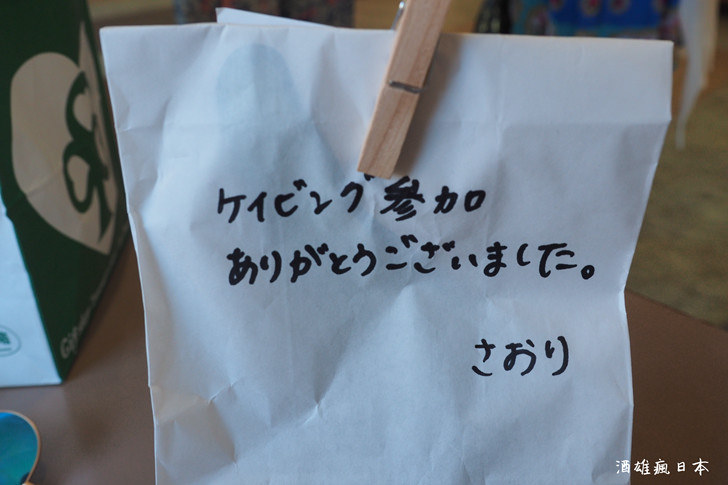 ケイビング参加
ありがとうございました。
さおり
酒雄瘋日本